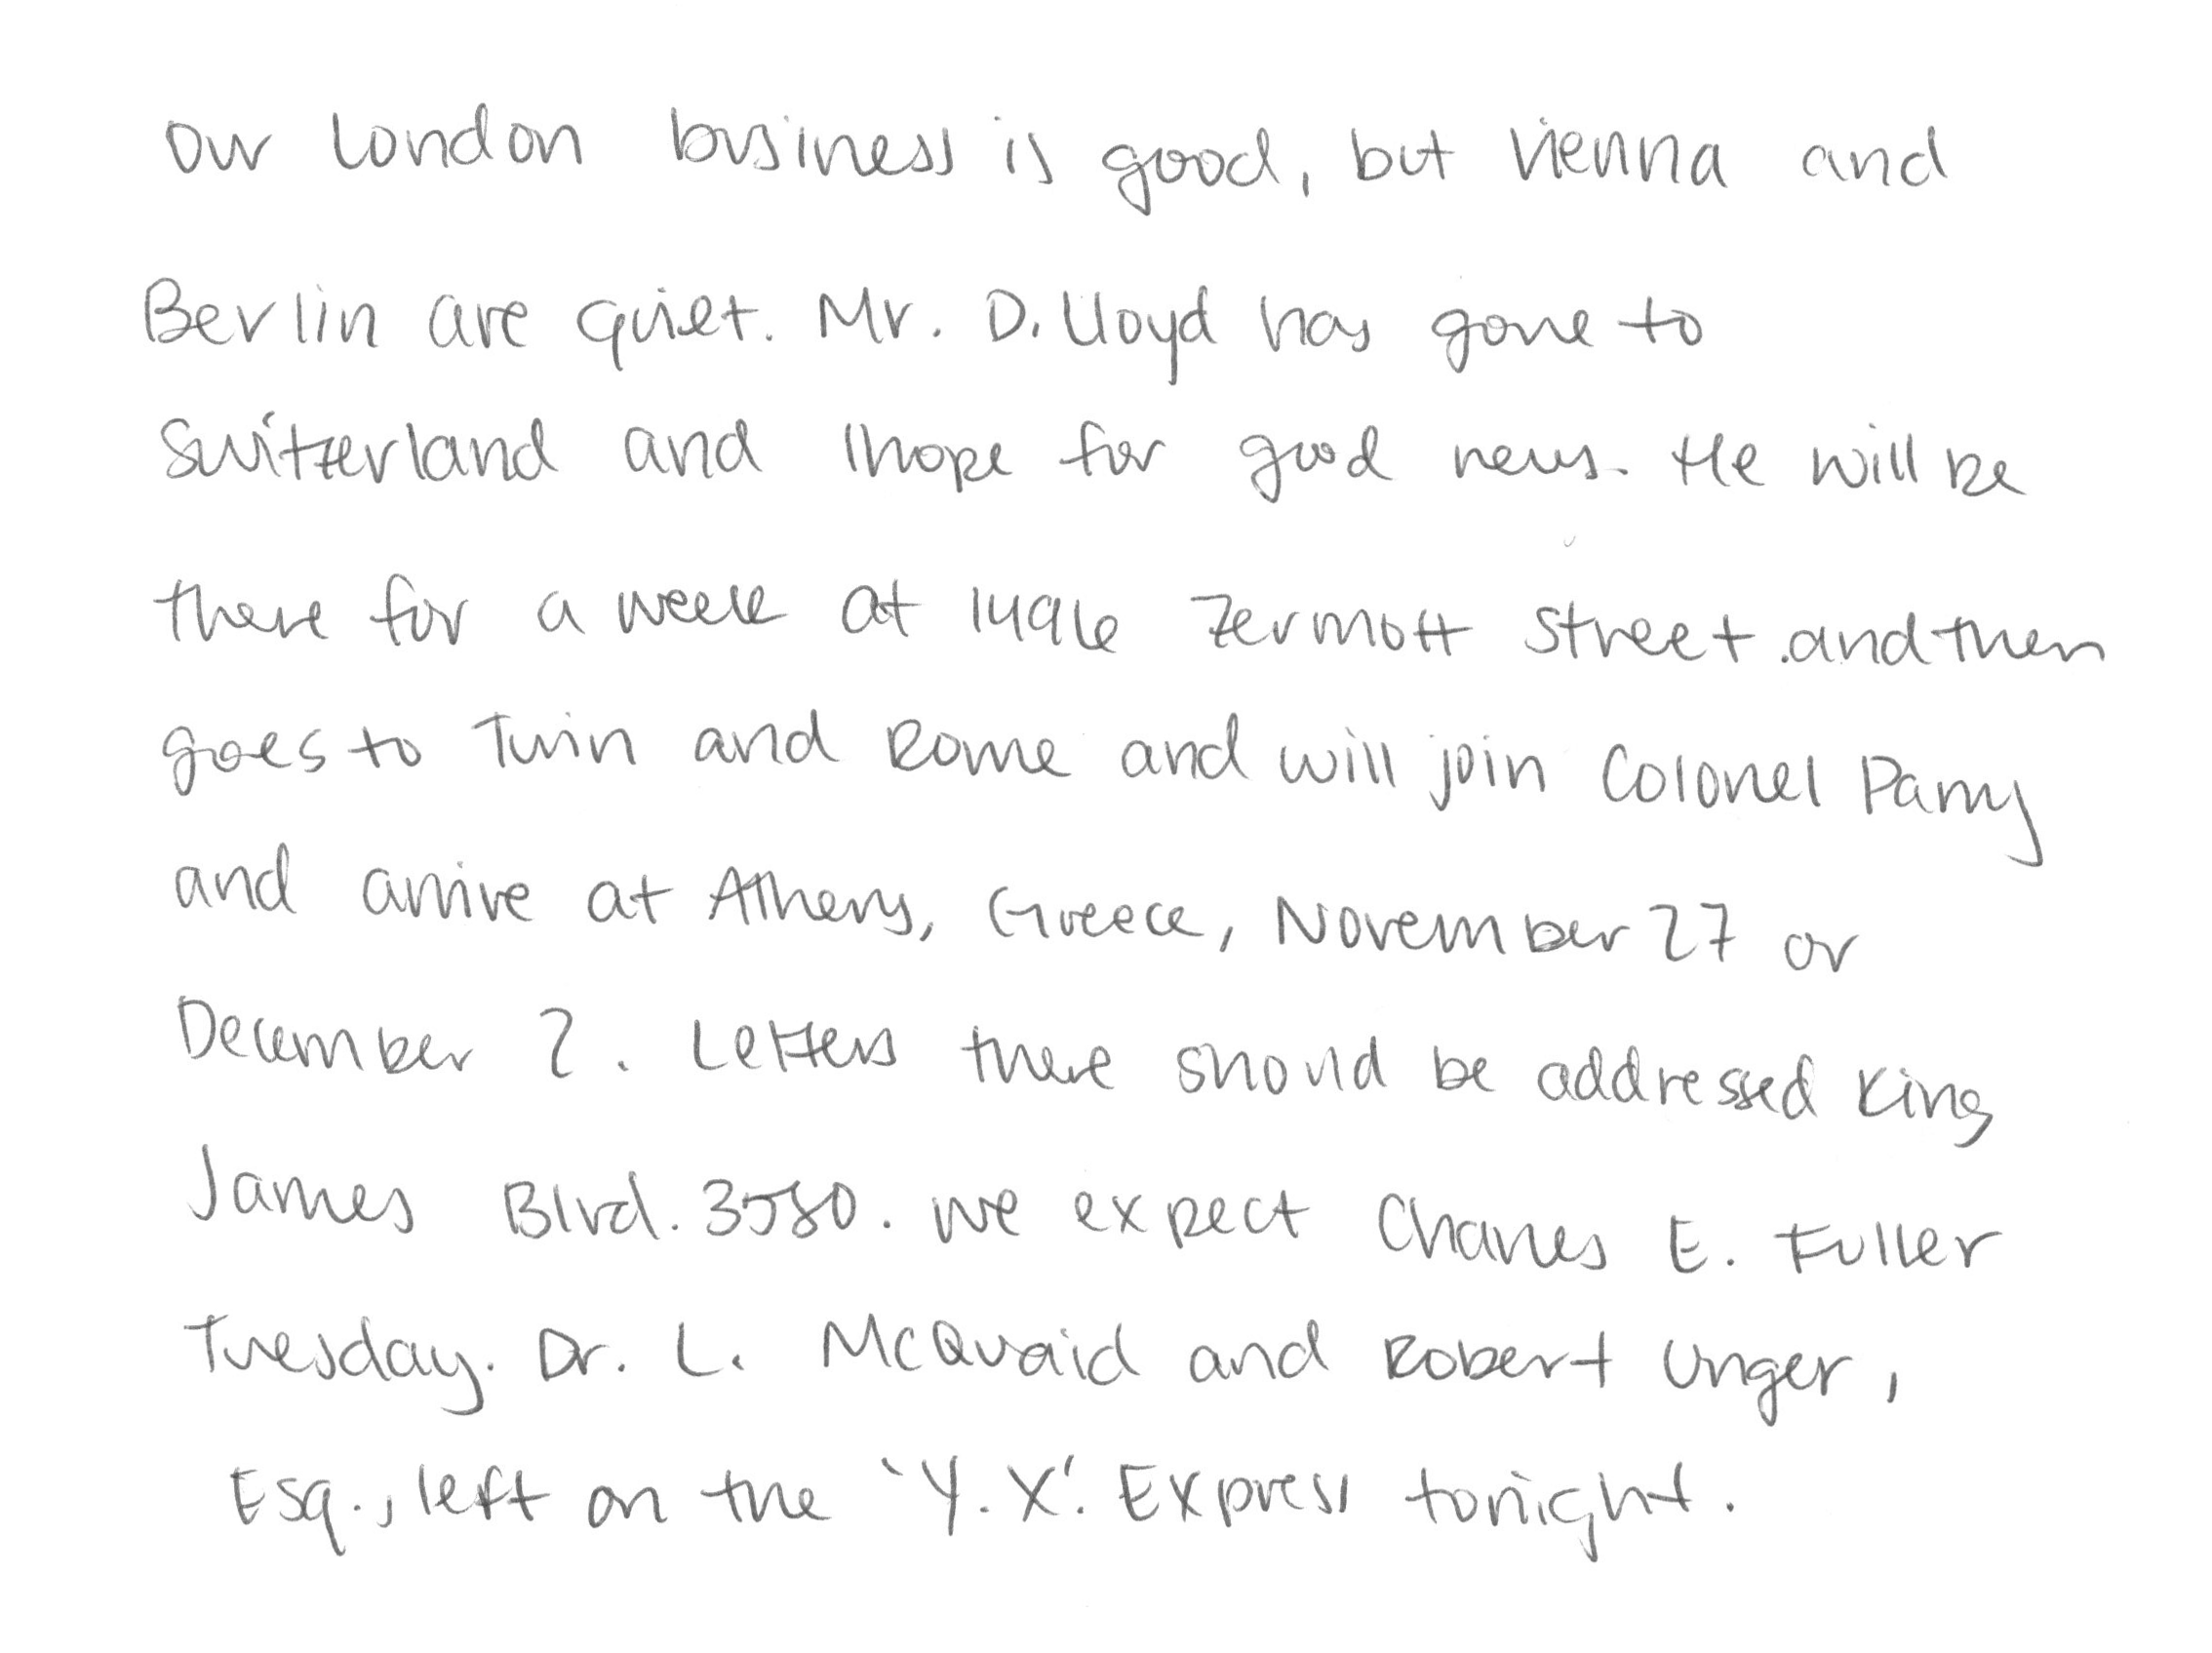 Our London business is good, but Vienna and
Berlin are quiet. Mr. D. Lloyd has gone to
Switzerland and I hope for good news. He will be
there for a week at 1496 Zermott Street and then
goes to Turin and Rome and will join Colonel Parry
and arrive at Athens, Greece, November 27 or
December 2. Letters there should be addressed King
James Blvd. 3580. We expect Charles E. Fuller
Tuesday. Dr. L. McQuaid and Robert Unger,
Esq., left on the 'Y.X.' Express tonight.